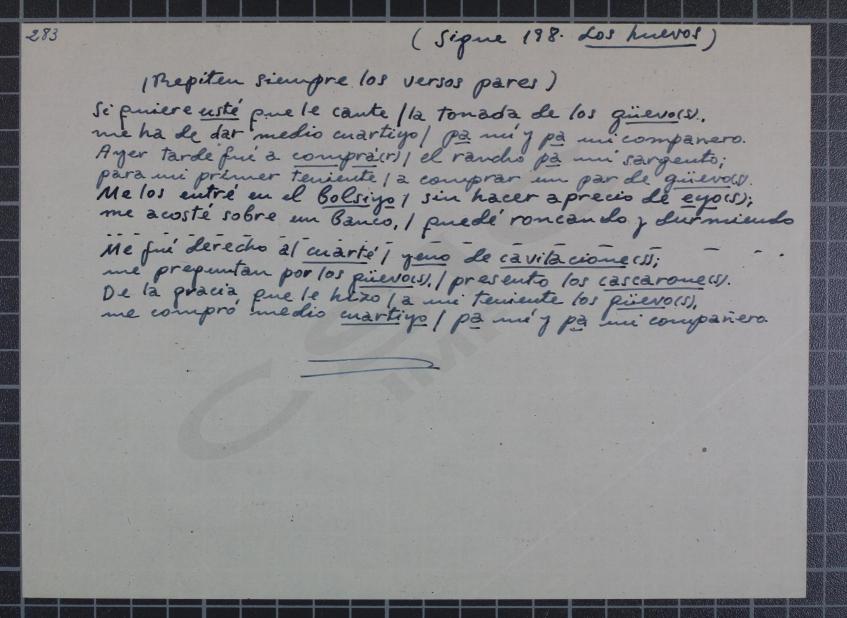 283
( Sigue 198. Los huevos )
(Repiten siempre los versos pares)
Si quiere usté que le cante / la tonada de los güevo(s),
me ha de dar medio cuartiyo / pa mí y pa mi compañero.
Ayer tarde fué a comprá(r) / el rancho pa mi sargento;
para mi primer teniente / a comprar un par de güevo(s).
Me los entré en el bolsiyo / sin hacer aprecio de eyo(s);
me acosté sobre un banco, / quedé roncando y durmiendo
Me fué derecho al cuarté / yeno de cavilacione(s);
me preguntan por los güevo(s), / presento los cascarone(s).
De la gracia que le hizo / a mi teniente los güevo(s),
me compró medio cuartiyo / pa mí y pa mi compañero.
CSIC